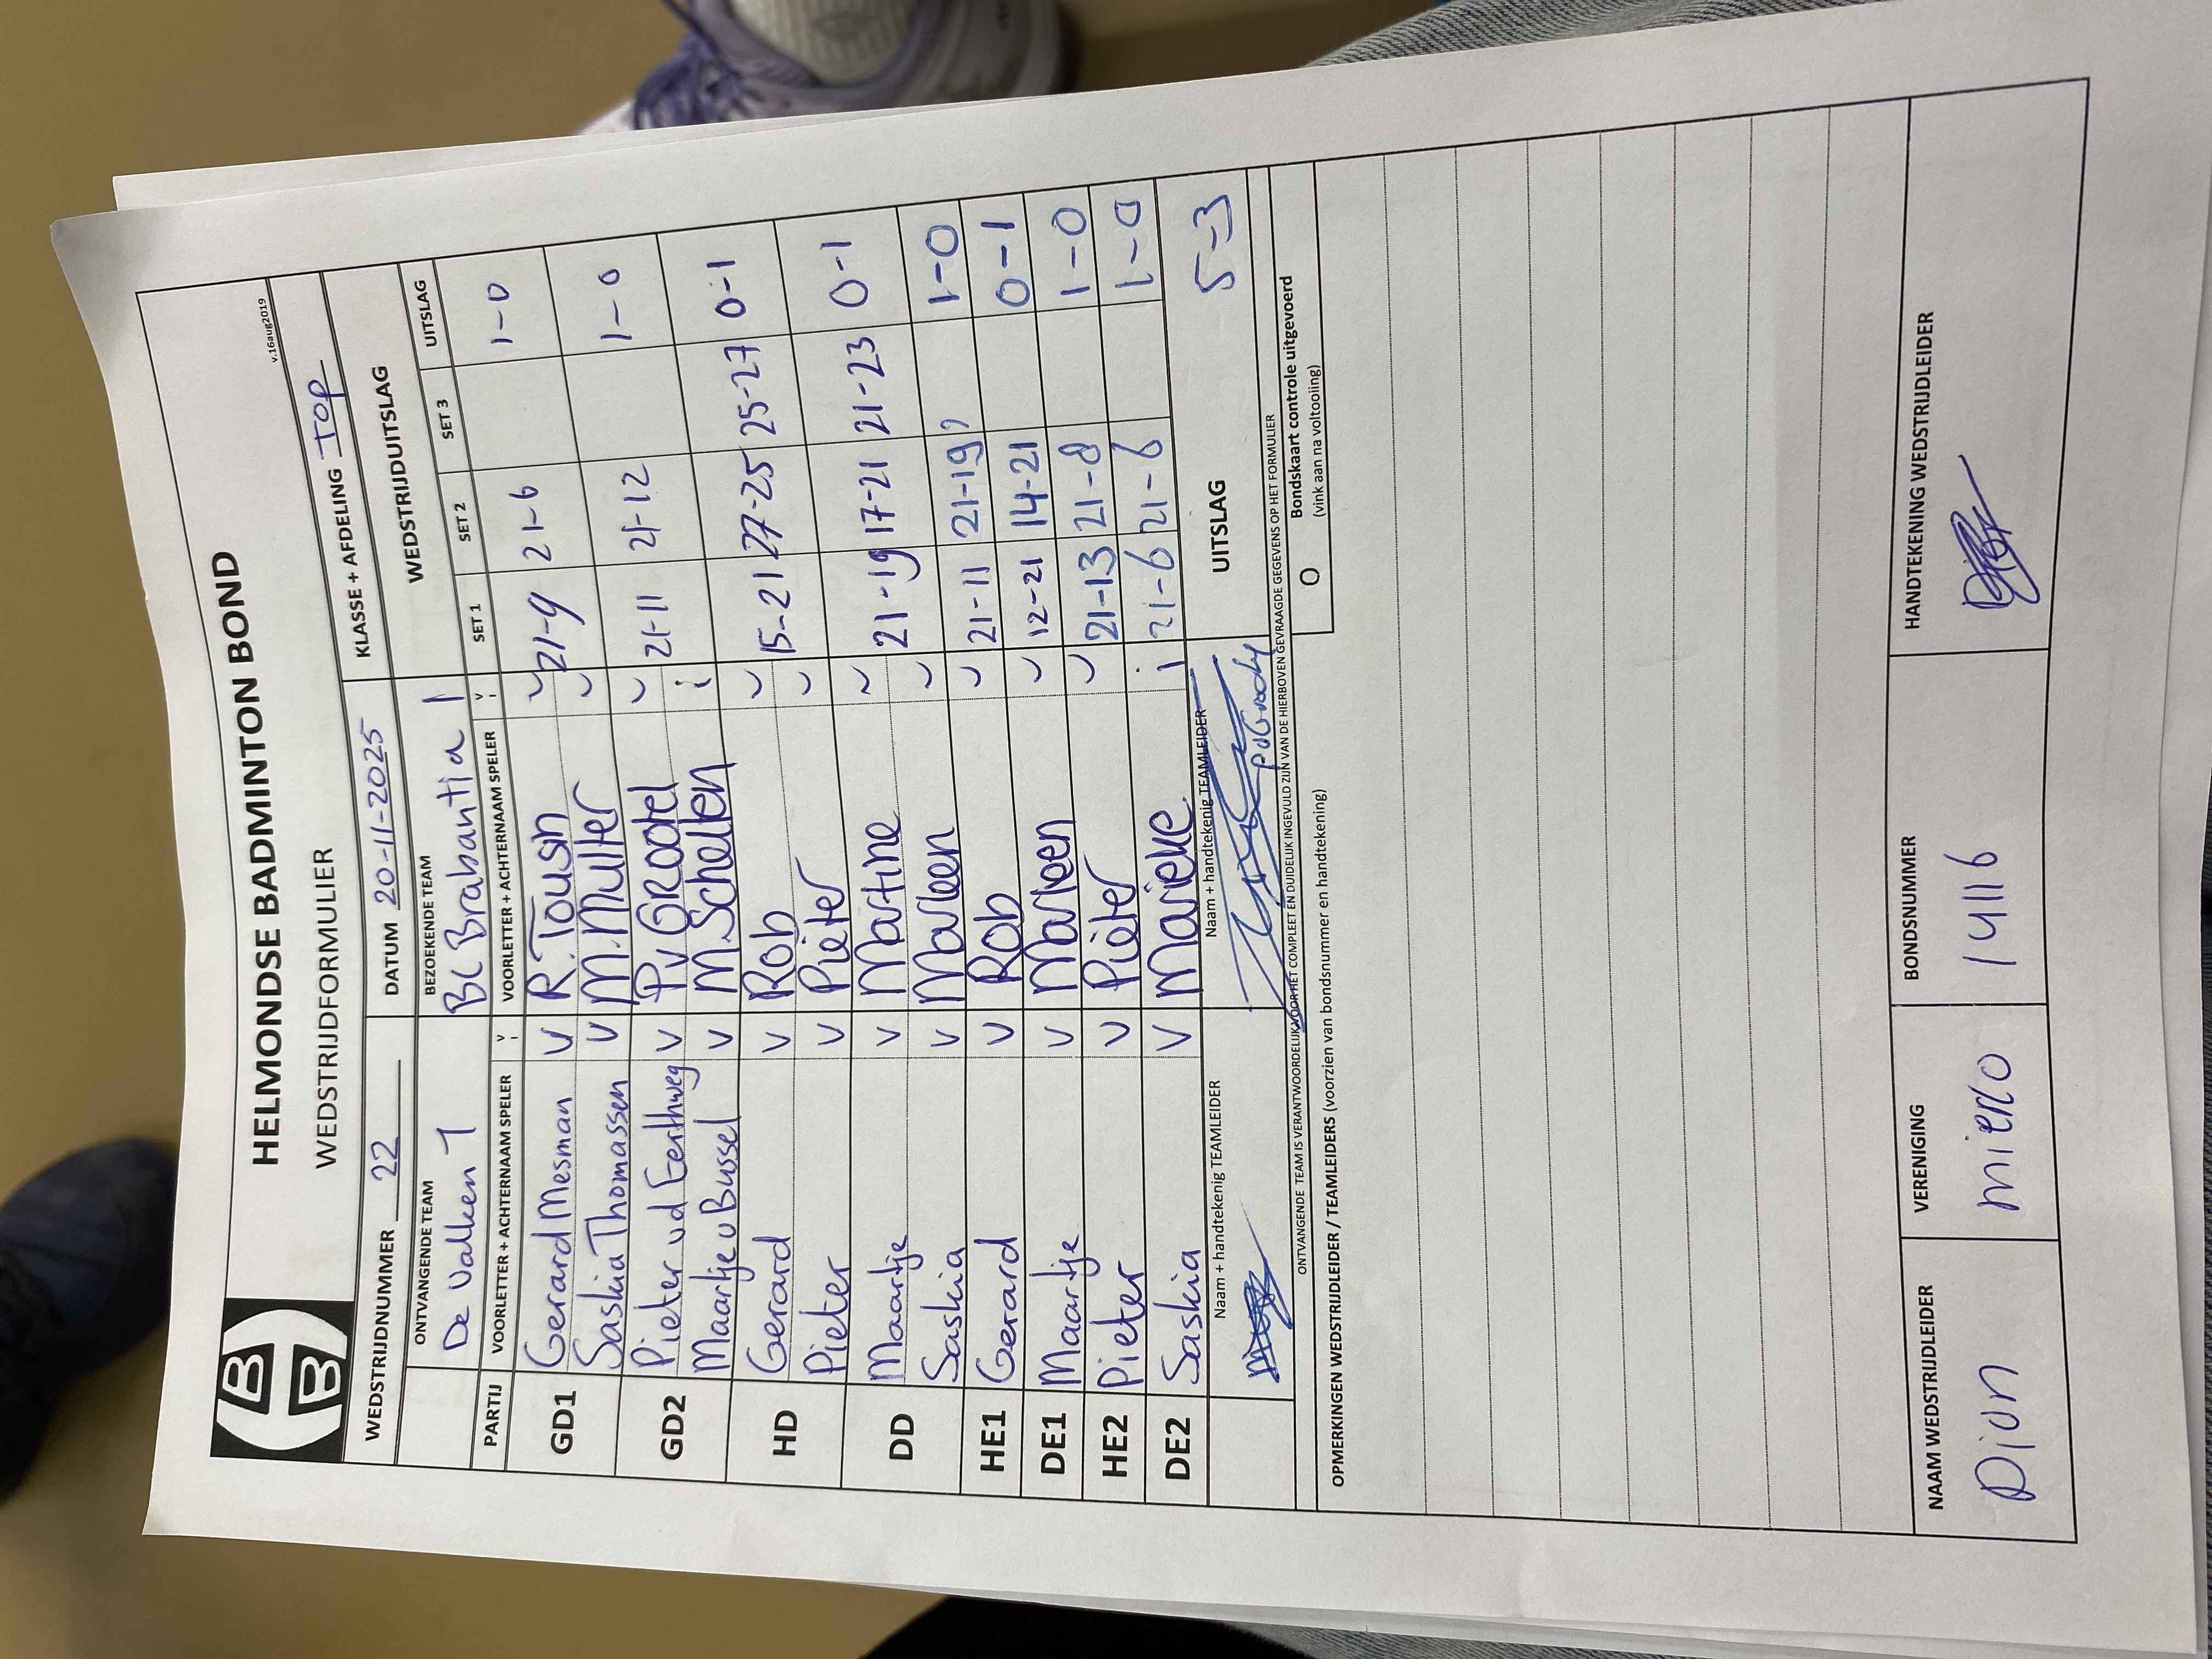 HELMONDSE BADMINTON BOND
v.16aug2019
WEDSTRIJDFORMULIER
WEDSTRIJDNUMMER 22 DATUM 20-11-2025 KLASSE + AFDELING TOP
ONTVANGENDE TEAM BEZOEKENDE TEAM WEDSTRIJDUITSLAG
De Valken 1 BC Brabantia 1
PARTIJ VOORLETTER + ACHTERNAAM SPELER V VOORLETTER + ACHTERNAAM SPELER V SET 1 SET 2 SET 3 UITSLAG
GD1 Gerard Mesman V R. Tousn V 21-9 21-6 1-0
Saskia Thomassen V M. Muller V
GD2 Pieter vd Eerthweg V P v Grootel V 21-11 21-12 1-0
Maartje v Bussel V M. Schellen i
HD Gerard V Rob V 15-21 27-25 25-27 0-1
Pieter V Pieter V
DD Maartje V Martine V 21-19 17-21 21-23 0-1
Saskia V Marleen V
HE1 Gerard V Rob V 21-11 21-19 1-0
DE1 Maartje V Marleen V 12-21 14-21 0-1
HE2 Pieter V Pieter V 21-13 21-8 1-0
DE2 Saskia V Marieke i 21-6 21-6 1-0
Naam + handtekenig TEAMLEIDER Naam + handtekenig TEAMLEIDER UITSLAG 5-3
ONTVANGENDE TEAM IS VERANTWOORDELIJK VOOR HET COMPLEET EN DUIDELIJK INGEVULD ZIJN VAN DE HIERBOVEN GEVRAAGDE GEGEVENS OP HET FORMULIER
O Bondskaart controle uitgevoerd
(vink aan na voltooiing)
OPMERKINGEN WEDSTRIJDLEIDER / TEAMLEIDERS (voorzien van bondsnummer en handtekening)
NAAM WEDSTRIJDLEIDER VERENIGING BONDSNUMMER HANDTEKENING WEDSTRIJDLEIDER
Dion mierlo 14116